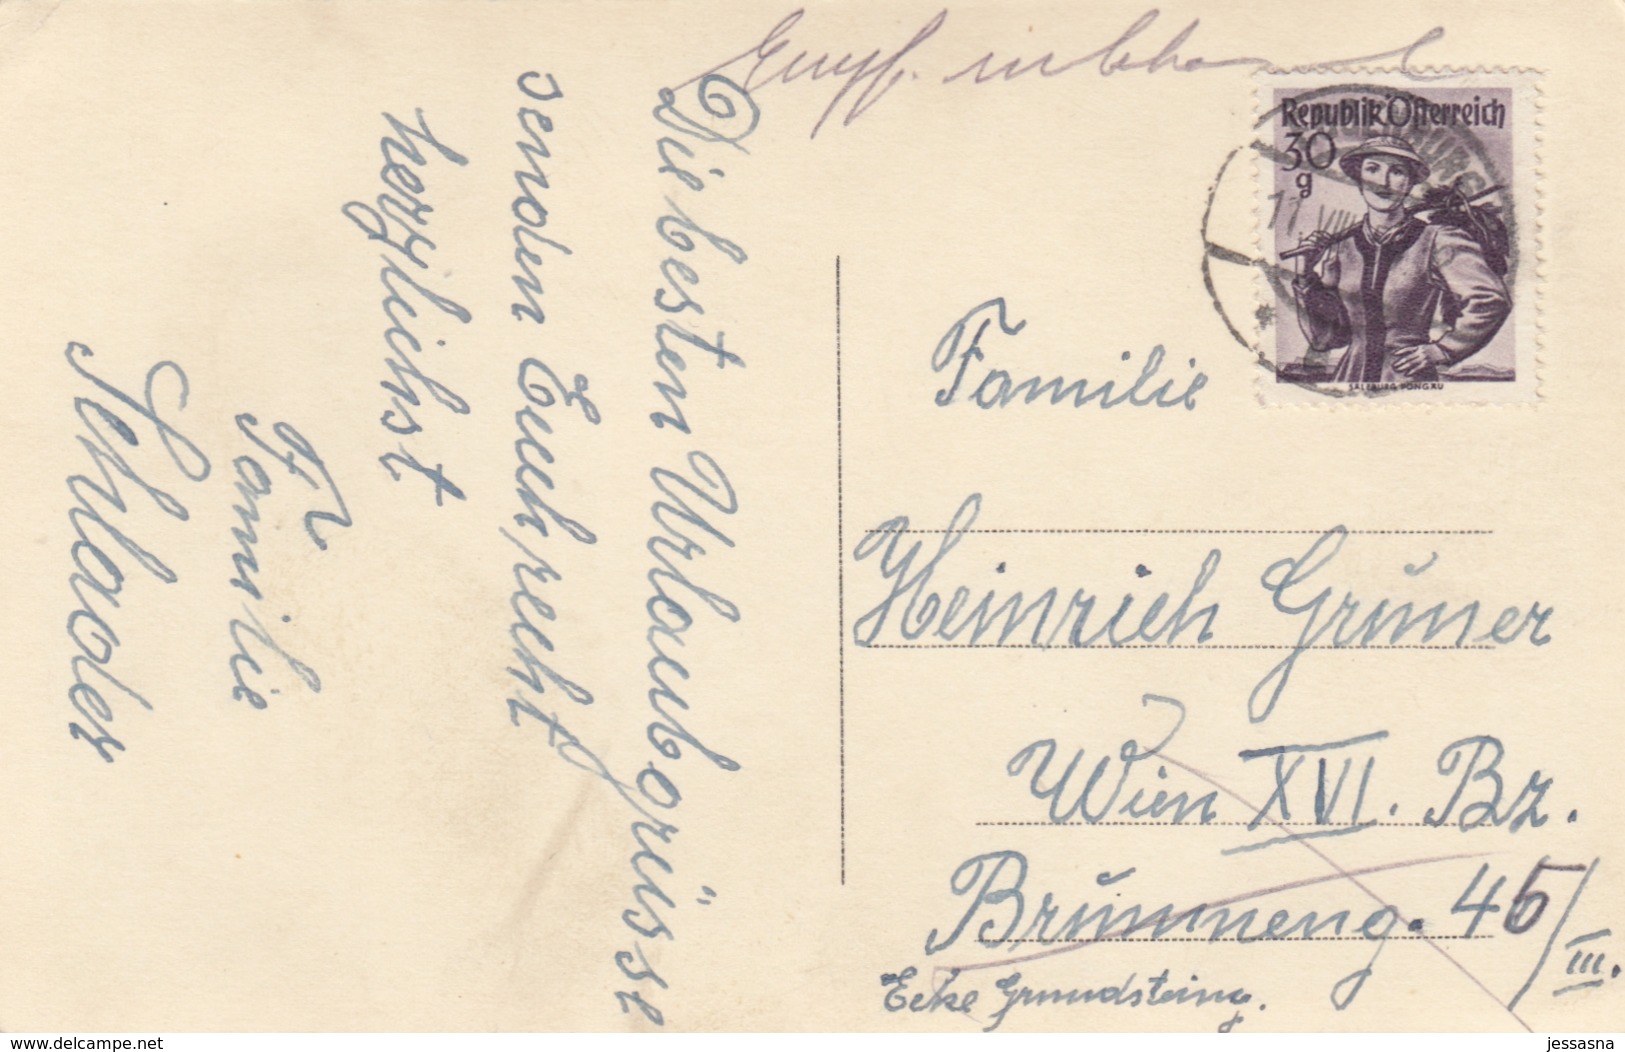 Die besten Urlaubsgrüsse
senden Euch, recht
herzlichst
Familie
Schlader
Empf.
Republik Österreich
30
g
SALZBURG PONGAU
17. VIII
Familie
Heinrich Gruner
Wien XVI. Bz.
Brunneng. 45/III.
Ecke Grundsteing.
delcampe.net
jessasna